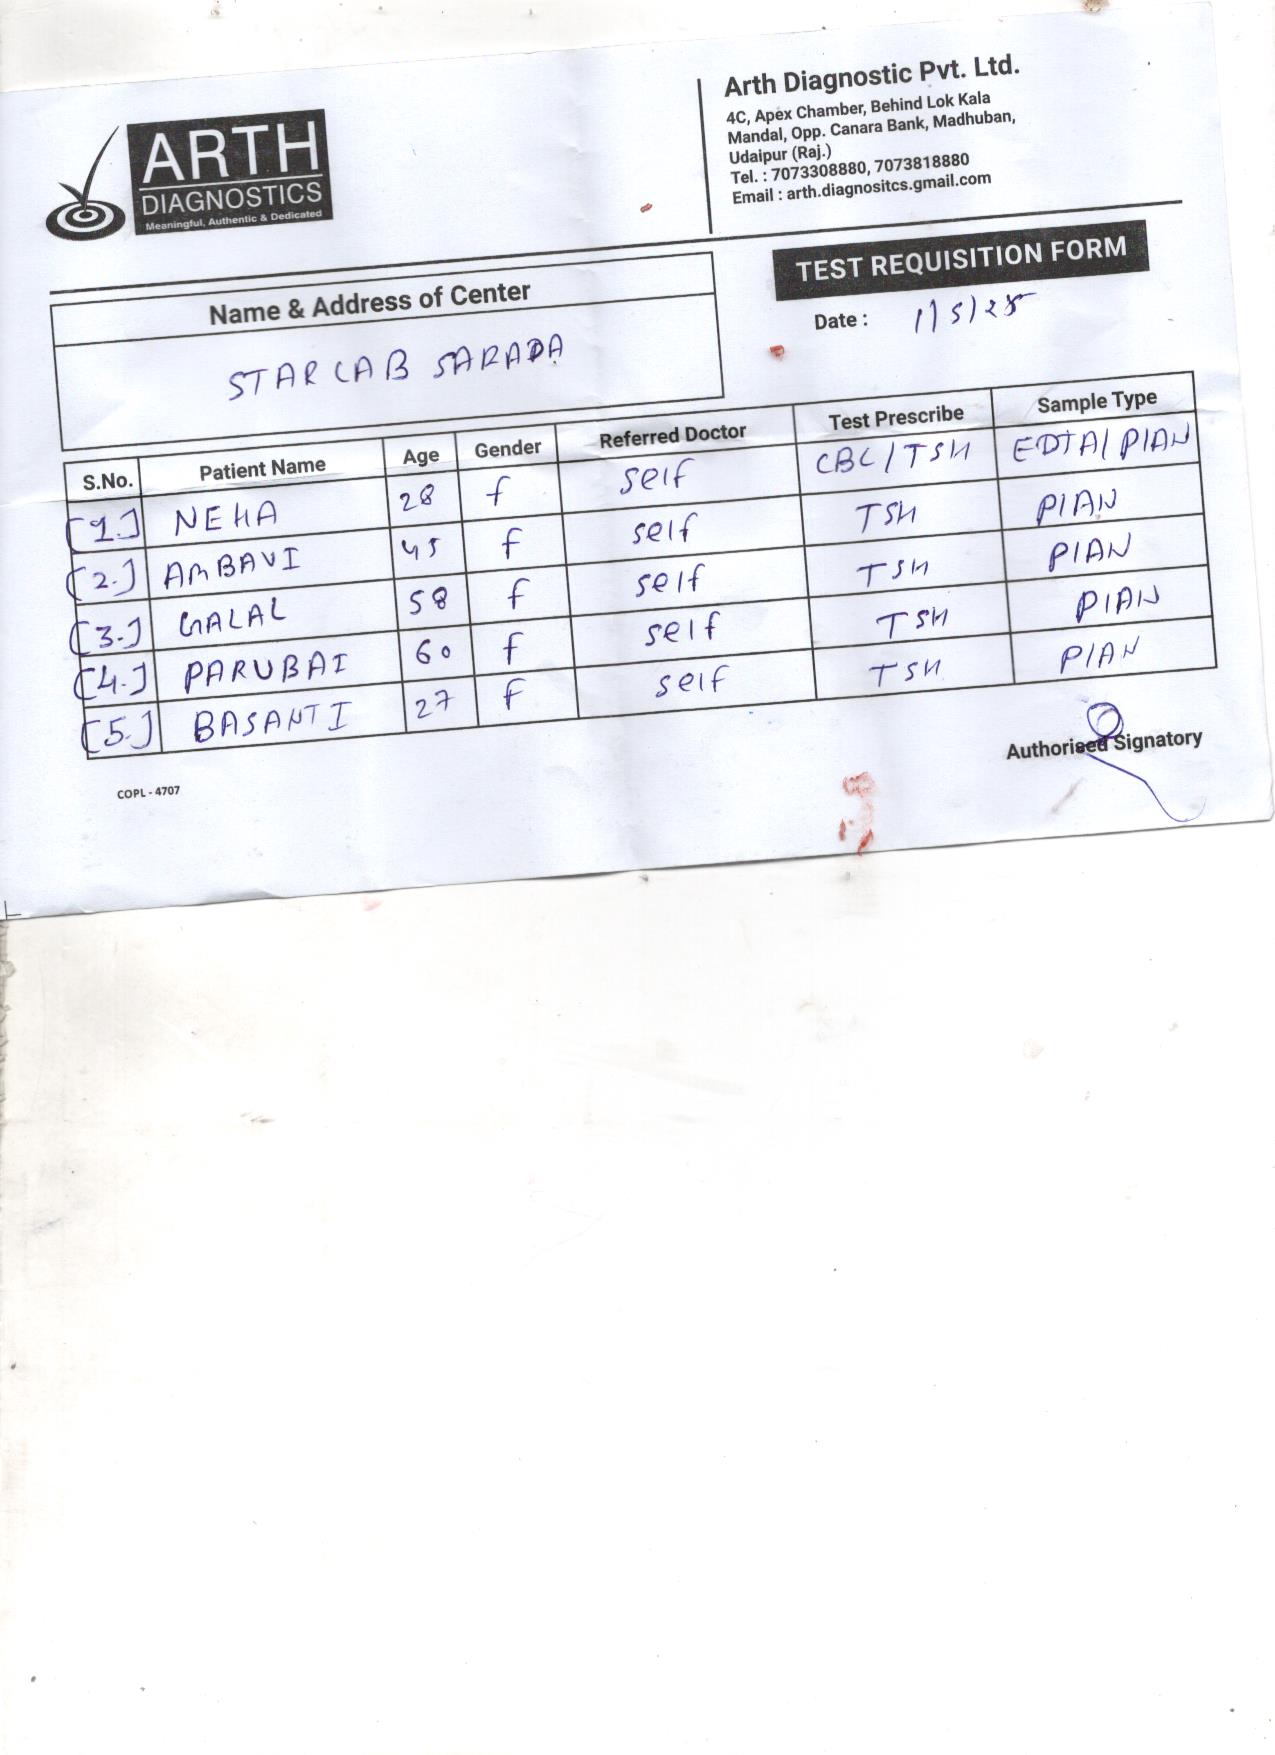 ARTH
DIAGNOSTICS
Meaningful, Authentic & Dedicated
Arth Diagnostic Pvt. Ltd.
4C, Apex Chamber, Behind Lok Kala
Mandal, Opp. Canara Bank, Madhuban,
Udaipur (Raj.)
Tel. : 7073308880, 7073818880
Email : arth.diagnositcs.gmail.com
TEST REQUISITION FORM
Name & Address of Center
STAR LAB SARADA
Date : 1/5/25
S.No. Patient Name Age Gender Referred Doctor Test Prescribe Sample Type
[1.] NEHA 28 f self CBC/TSH EDTA/PIAN
[2.] AMBAVI 45 f self TSH PIAN
[3.] GALAL 58 f self TSH PIAN
[4.] PARUBAI 60 f self TSH PIAN
[5.] BASANTI 27 f self TSH PIAN
Authorised Signatory
COPL - 4707